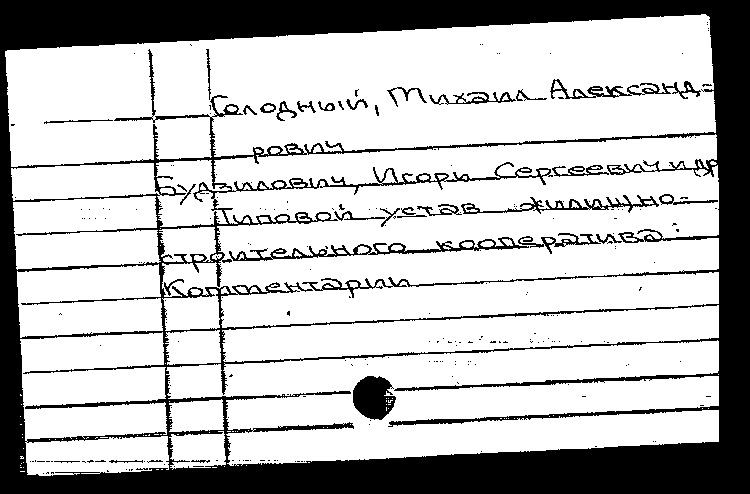 Голодный, Михаил Александ-
рович
Будзилович, Игорь Сергеевич и др
Типовой устав жилищно-
строительного кооператива:
Комментарии